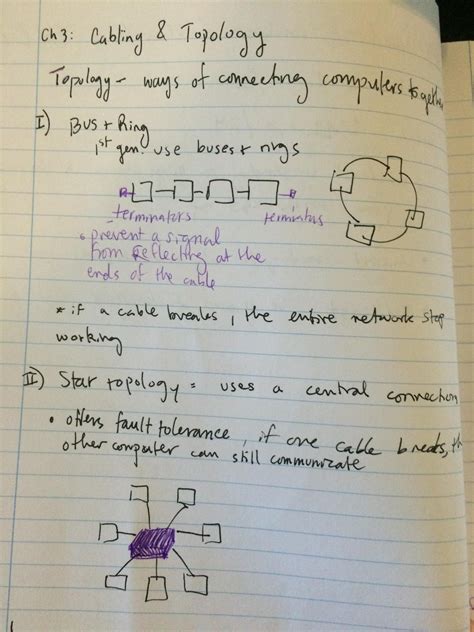 Ch 3: Cabling & Topology
Topology - ways of connecting computers together
I) Bus + Ring
1st gen. use buses + rings
terminators
terminators
• prevent a signal
from reflecting at the
ends of the cable
* if a cable breakes, the entire network stop
working
II) Star topology = uses a central connection
• offers fault tolerance, if one cable breaks, th
other computer can still communicate